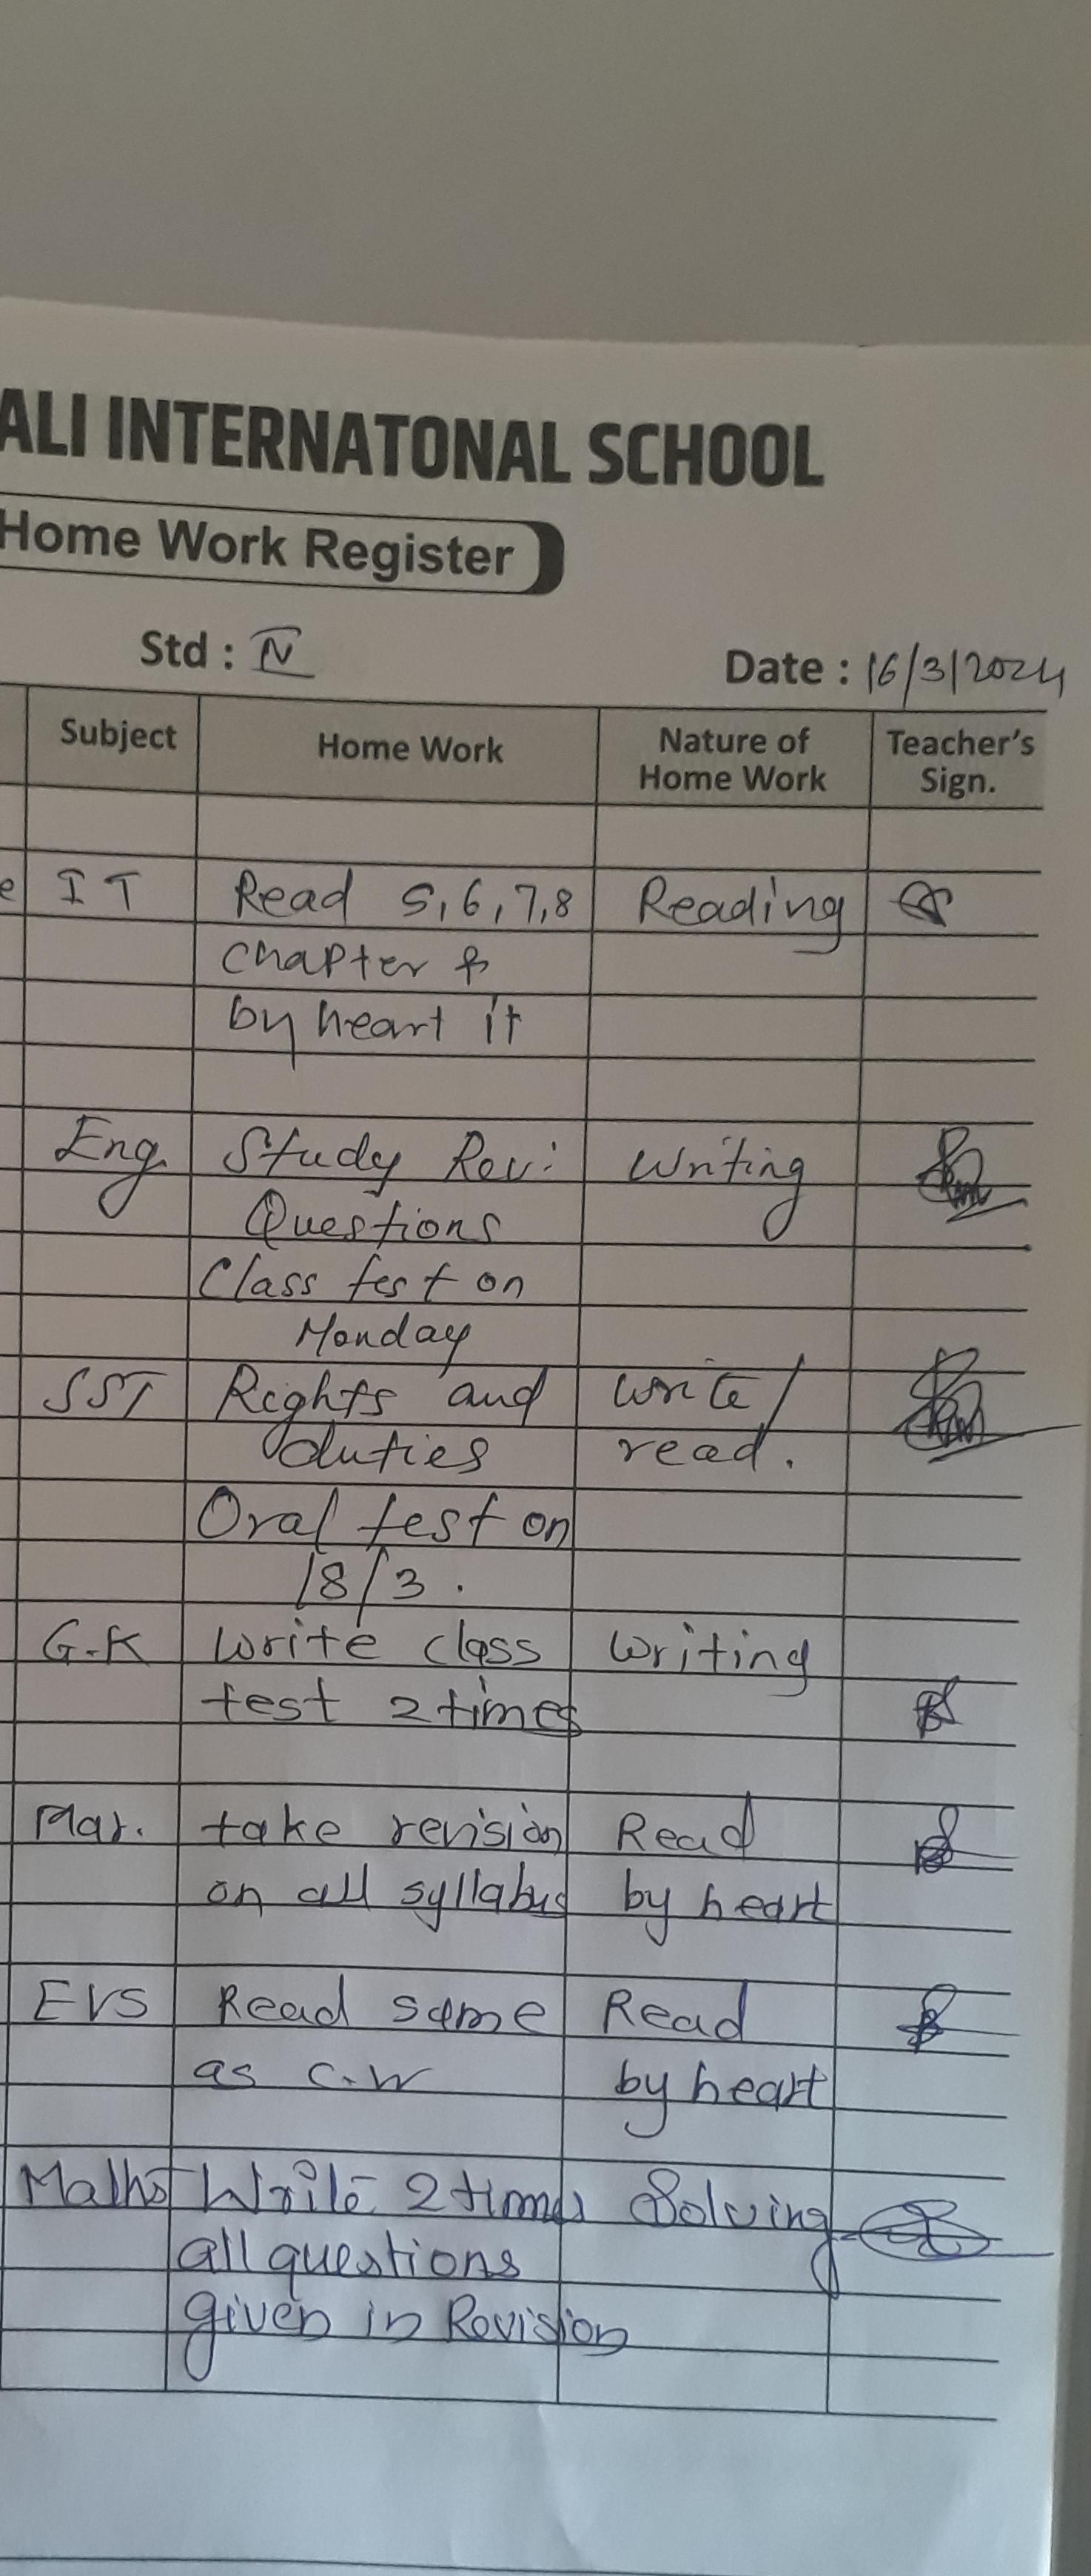 ALI INTERNATONAL SCHOOL
Home Work Register
Std : IV Date : 16/3/2024
Subject Home Work Nature of Home Work Teacher's Sign.
e IT Read 5,6,7,8 Reading
chapter &
by heart it
Eng. Study Rev: writing
Questions
Class test on
Monday
SST Rights and write/
duties read.
Oral test on
18/3.
G.K write class writing
test 2 times
Mar. take revision Read
on all syllabus by heart
EVS Read same Read
as C.W by heart
Maths Write 2 times Solving
all questions
given in Revision